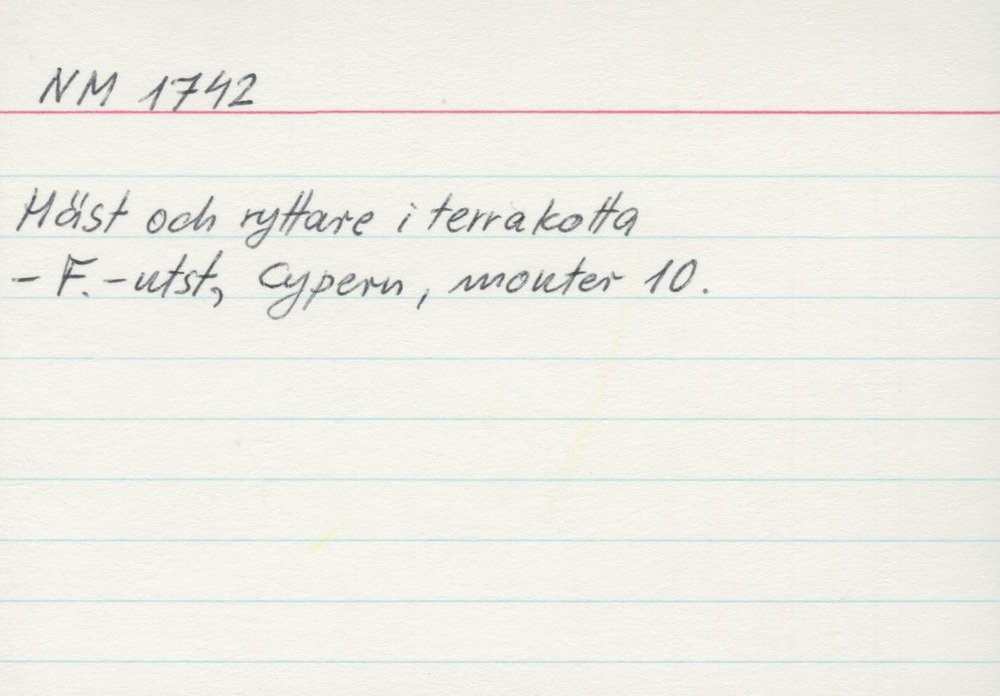 NM 1742
Häst och ryttare i terrakotta
- F.-utst, Cypern, monter 10.